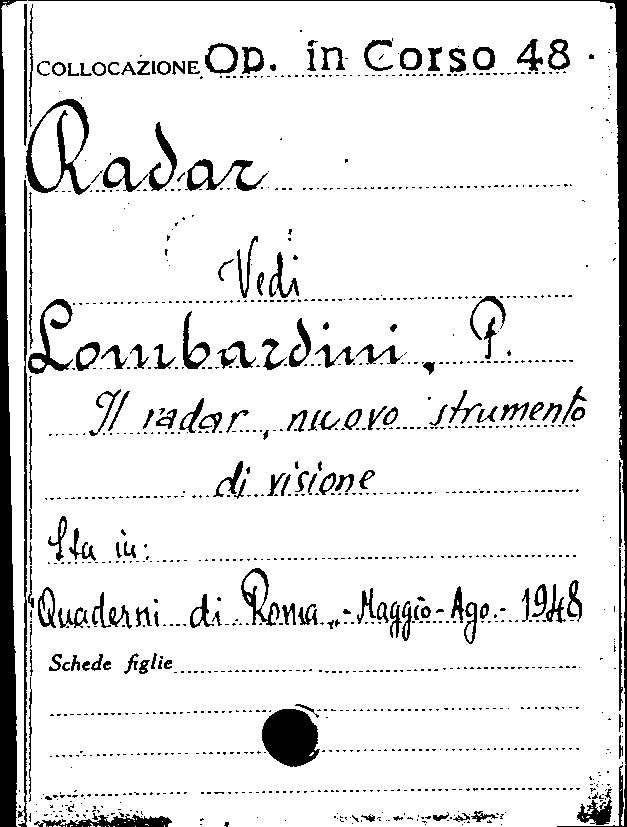 COLLOCAZIONE Op. in Corso 48.
Radar
Vedi
Lombardini, P.
Il radar, nuovo strumento
di visione
Sta in:
"Quaderni di Roma" - Maggio - Ago. - 1948
Schede figlie